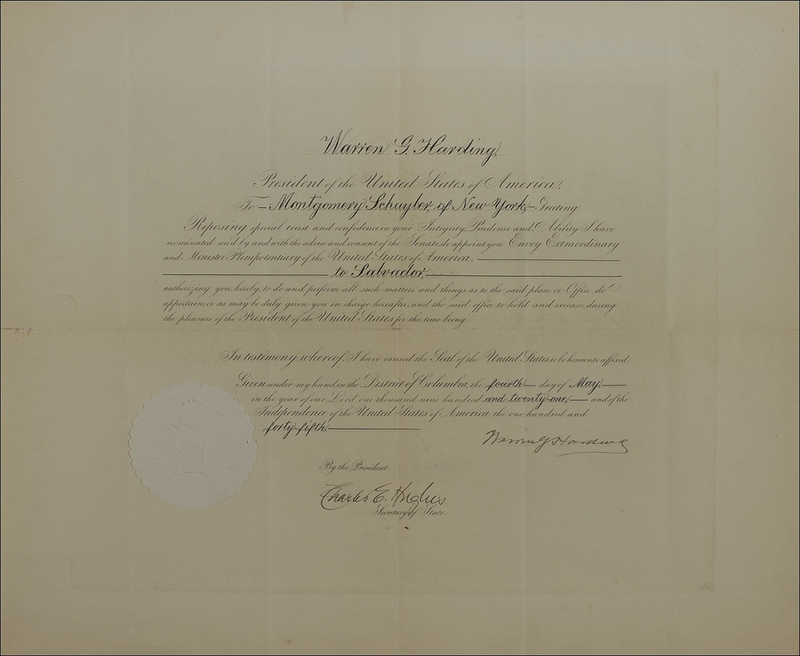 Warren G. Harding,
President of the United States of America,
To Montgomery Schuyler, of New York, Greeting
Reposing special trust and confidence in your Integrity, Prudence and Ability I have
nominated and by and with the advice and consent of the Senate do appoint you Envoy Extraordinary
and Minister Plenipotentiary of the United States of America,
to Salvador,
authorizing you hereby to do and perform all such matters and things as to the said place or Office do
appertain, or as may be duly given you in charge hereafter, and the said office to hold and exercise during
the pleasure of the President of the United States for the time being.
In testimony whereof, I have caused the Seal of the United States to be hereunto affixed.
Given under my hand in the District of Columbia the fourth day of May,
in the year of our Lord one thousand nine hundred and twenty one, and of the
Independence of the United States of America the one hundred and
forty-fifth.
Warren G Harding
By the President:
Charles E. Hughes
Secretary of State.